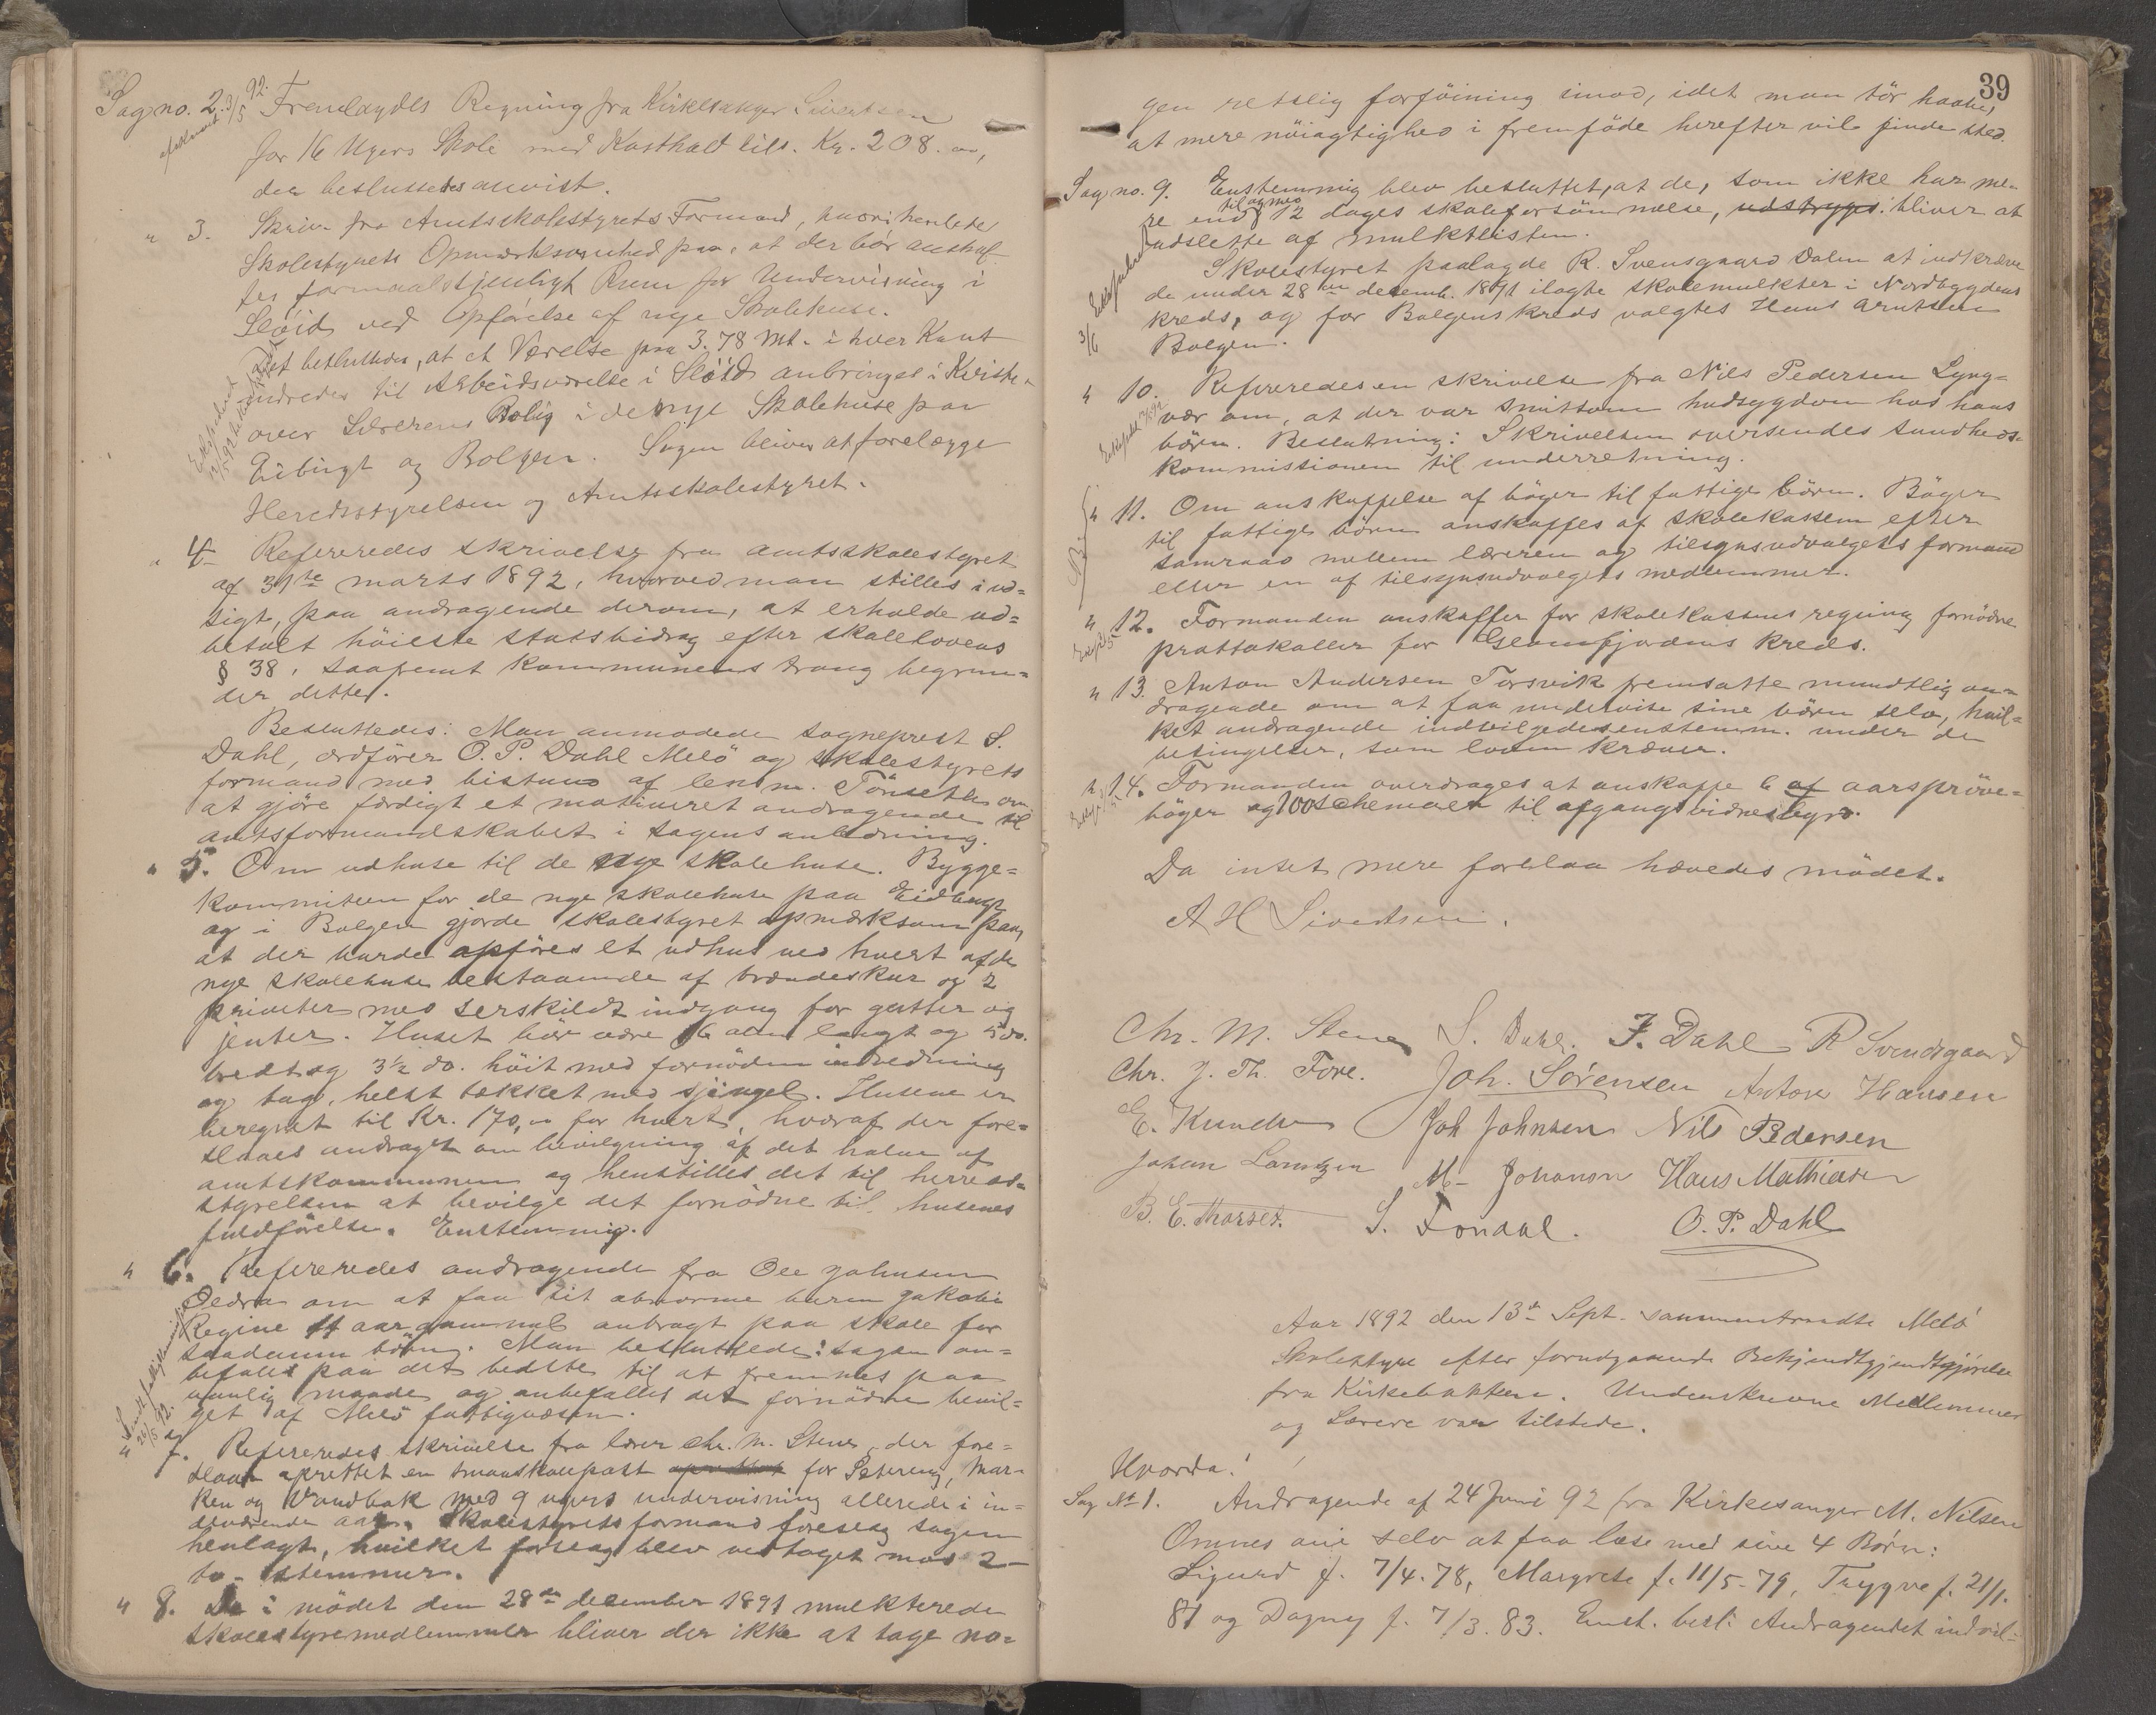 Sag no. 2. 3/5 92. Fremlagdes Regning fra Kirkesanger Sivertsen
for 16 Ugers Skole med Kosthold tils. Kr. 208.00,
der besluttedes anvist.
" 3. Skriv. fra Amtsskolestyrets Formand, hvori henledes
Skolestyrets Opmærksomhed paa, at der bör anskaf-
fes formaalstjenligt Rum for Undervisning i
Slöid ved Opförelse af nye Skolehuse.
Det besluttedes, at et Værelse paa 3.78 Mt. i hver Kant
indredes til Arbeidsværelse i Slöid anbringes i Kviste
over Lærerens Bolig i de nye Skolehuse paa
Eidbugt og Bolgen. Sagen bliver at forelægge
Heredsstyrelsen og Amtsskolestyret.
" 4. Refereredes skrivelse fra amtsskolestyret
af 31te marts 1892, hvorved man stilles i ud=
sigt, paa andragende derom, at erholde ud=
betalt höieste statsbidrag efter skolelovens
§ 38, saafremt kommunens trang begrun=
der dette.
Besluttedes: Man anmodede sogneprest S.
Dahl, ordförer O. P. Dahl Melö og skolestyrets
formand med bistand af lensm. Tönseth om
at gjöre færdigt et motiveret andragende til
amtsformandskabet i sagens anledning.
" 5. Om udhuse til de nye skolehuse. Bygge=
kommiteen for de nye skolehuse paa Eidbugt
og i Bolgen gjorde skolestyret opmærksom paa,
at der burde opföres et udhus ved hvert af de
nye skolehuse bestaaende af brændeskur og 2
priveter med serskildt indgang for gutter og
jenter. Huset bör være 6 alen langt og 5 do.
bredt og 3½ do. höit med fornöden indredning
og tag, helst tækket med sjingel. Husene er
beregnet til Kr. 170,00 for hvert, hvoraf der fore=
slaaes andraget om bevilgning af det halve af
amtskommunen og henstilles det til herreds=
styrelsen at bevilge det fornödne til husenes
fuldförelse. Enstemmig.
" 6. Refereredes andragende fra Ole Johnsen
Oldra om at faa sit abnorme barn Jakobi
Regine 11 aar gammel anbragt paa skole for
saadanne börn. Man besluttede: sagen an=
befales paa det bedste til at fremmes paa
vanlig maade og anbefalles det fornödne bevil=
get af Melö fattigvæsen.
" 7. Refereredes skrivelse fra lærer Chr. M. Stene, der fore=
slaar oprettet en smaaskolepost for Setereng, Mar-
ken og Vandbak med 9 ugers undervisning allerede i in=
deværende aar. Skolestyrets formand foreslog sagen
henlagt, hvilket forslag blev vedtaget mod 2 –
to – stemmer.
" 8. De i mödet den 28de december 1891 mulkterede
skolestyremedlemmer bliver der ikke at tage no=
39
gen retslig forföining imod, idet man tör haabe,
at mere nöiagtighed i fremföde herefter vil finde sted.
Sag no. 9. Enstemmig blev besluttet, at de, som ikke har me-
re end til og med 2 dages skoleforsömmelse, udstryges: bliver at
udslette af mulktlisten.
Skolestyret paalagde R. Svensgaard Dalen at indkræve
de under 28de decemb. 1891 ilagte skolemulkter i Nordbygdens
kreds, og for Bolgens kreds valgtes Hans Arntsen
3/6 Bolgen.
" 10. Refereredes en skrivelse fra Nils Pedersen Lyng=
vær om, at der var smitsom hudsygdom hos hans
börn. Beslutning: Skrivelsen oversendes sundheds-
kommissionen til underretning.
" 11. Om anskaffelse af böger til fattige börn. Böger
til fattige börn anskaffes af skolekassen efter
samraad mellem læreren og tilsynsudvalgets formand
eller en af tilsynsudvalgets medlemmer.
" 12. Formanden anskaffer for skolekassens regning fornödne
prottokoller for Glomfjordens kreds.
" 13. Anton Andersen Torsvik fremsatte mundtlig an=
dragende om at faa undervise sine börn selv, hvil=
ket andragende indvilgedes enstemm. under de
betingelser, som loven kræver.
" 14. Formanden overdrages at anskaffe 6 af aarspröve=
böger og 100 schemaer til afgangsvidnesbyrd.
Da intet mere forelaa hævedes mödet.
A H Sivertsen.
Chr. M. Stene S. Dahl. J. Dahl R Svendsgaard
Chr. J. Th. Fore. Joh. Sörensen Anton Hansen
E. Knudsen Joh Johnsen Nils Pedersen
Johan Lorntzen M. Johanson Hans Mathiesen
B. E. Thorset. S. Fondal. O. P. Dahl
Aar 1892 den 13de Sept. sammentraadte Melö
Skolestyre efter forudgaaende Bekjendtgjendtgjörelse
fra Kirkebakken. Underskrevne Medlemmer
og Lærere var tilstede.
Hvorda:
Sag No 1. Andragende af 24 Juni 92 fra Kirkesanger M. Nilsen
Omnes om selv at faa læse med sine 4 Börn:
Sigurd f. 7/4.78, Margrete f. 11/5-79, Trygve f. 21/1.
81 og Dagny f. 7/3.83. Enst. besl: Andragendet indvil=